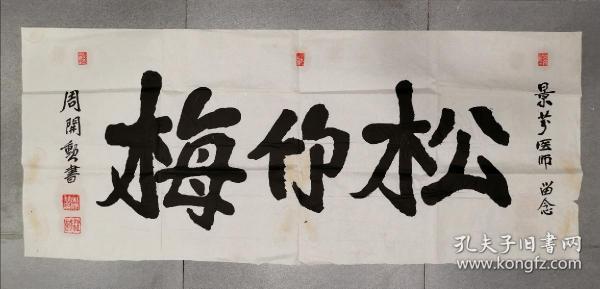 景芳医师 留念
松竹梅
周開勲書
孔夫子旧书网
www.kongfz.com